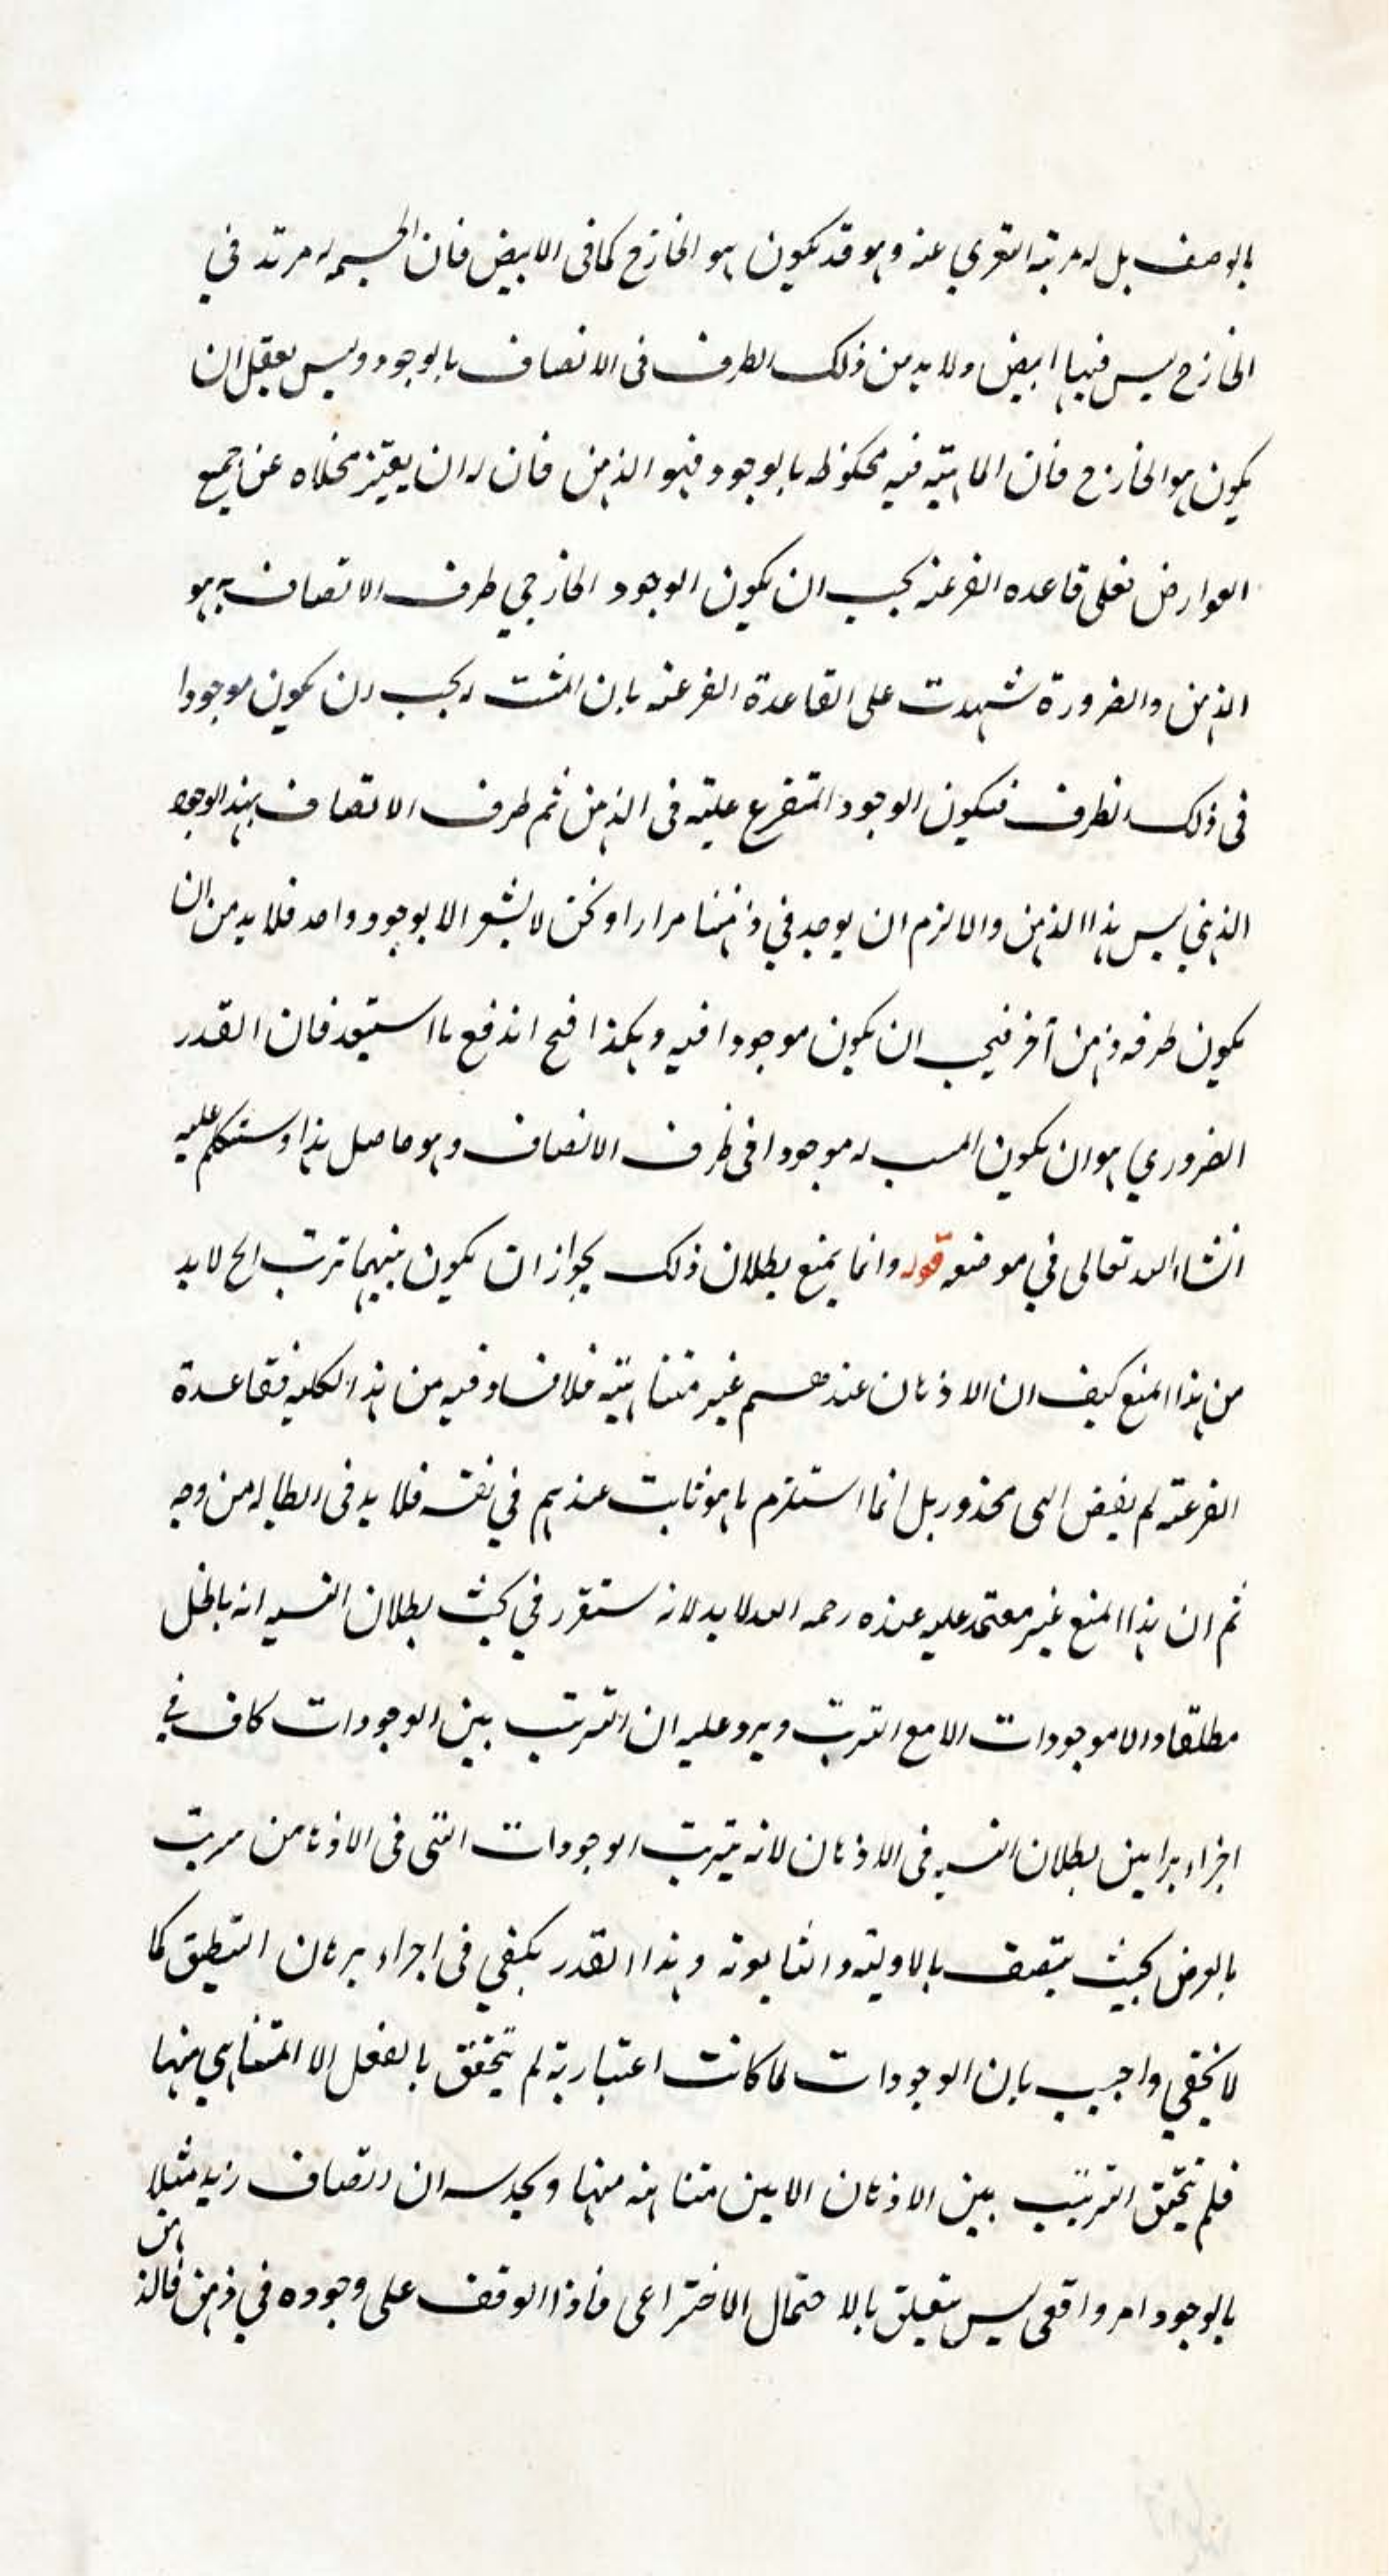 بالوصف بل له مرتبه التعري عنه وهو قد يكون هو الخارج كما فى الابيض فان الجسم له مرتبه في
الخارج ليس فيها ابيض ولا بد من ذلك الظرف فى الاتصاف بالوجود وليس يعقل ان
يكون هو الخارج فان الماهيّه فيه محفوظه بالوجود فهو الذهن فان له ان يعتبر مخلاه عن جميع
العوارض فعلى قاعده الفرعيه يجب ان يكون الوجود الخارجي ظرف الاتصاف به هو
الذهن والضرورة شهدت على القاعدة الفرعيه بان المثبت له يجب ان يكون موجودا
فى ذلك الظرف فيكون الوجود المتفرع عليه فى الذهن ثم ظرف الاتصاف بهذا الوجود
الذهني ليس هذا الذهن والا لزم ان يوجد في ذهننا مرارا ونحن لا نشعر الا بوجود واحد فلا بد من ان
يكون ظرفه ذهن آخر فيجب ان يكون موجودا فيه وهكذا فح اندفع ما استبعد فان القدر
الضروري هو ان يكون المثبت له موجودا فى ظرف الاتصاف وهو حاصل هذا وستكلم عليه
انشاء الله تعالى في موضعه قوله وانما يمنع بطلان ذلك بجواز ان يكون بينهما ترتب الخ لا بد
من هذا المنع كيف ان الاذهان عندهم غير متناهيّه فلا فساد فيه من هذا الكليه فقاعدة
الفرعيّه لم يفض الى محذور بل انما استلزم ما هو ثابت عندهم في نفسه فلا بد فى ابطاله من وجه
ثم ان هذا المنع غير معتمد عليه عنده رحمه الله لا بد لانه ستقرر في بحث بطلان التسـ انه باطل
مطلقا والا موجودات الا مع الترتب ويرد عليه ان الترتب بين الوجودات كاف في
اجراء براهين بطلان التسـ فى الاذهان لانه يترتب الوجودات التى فى الاذهان مرتب
بالعرض بحيث يتصف بالاوليّه والثانويه وهذا القدر يكفي فى اجراء برهان التطبيق كما
لا يخفي واجيب بان الوجودات لما كانت اعتباريّة لم يتحقق بالفعل الا المتناهي منها
فلم يتحقق الترتيب بين الاذهان الا بين متناهيه منها ويحدسه ان اتصاف زيد مثلا
بالوجود امر واقعى ليس يتعلق بالاحتمال الاختراعى فاذا الوقف على وجوده في ذهن فالذهن